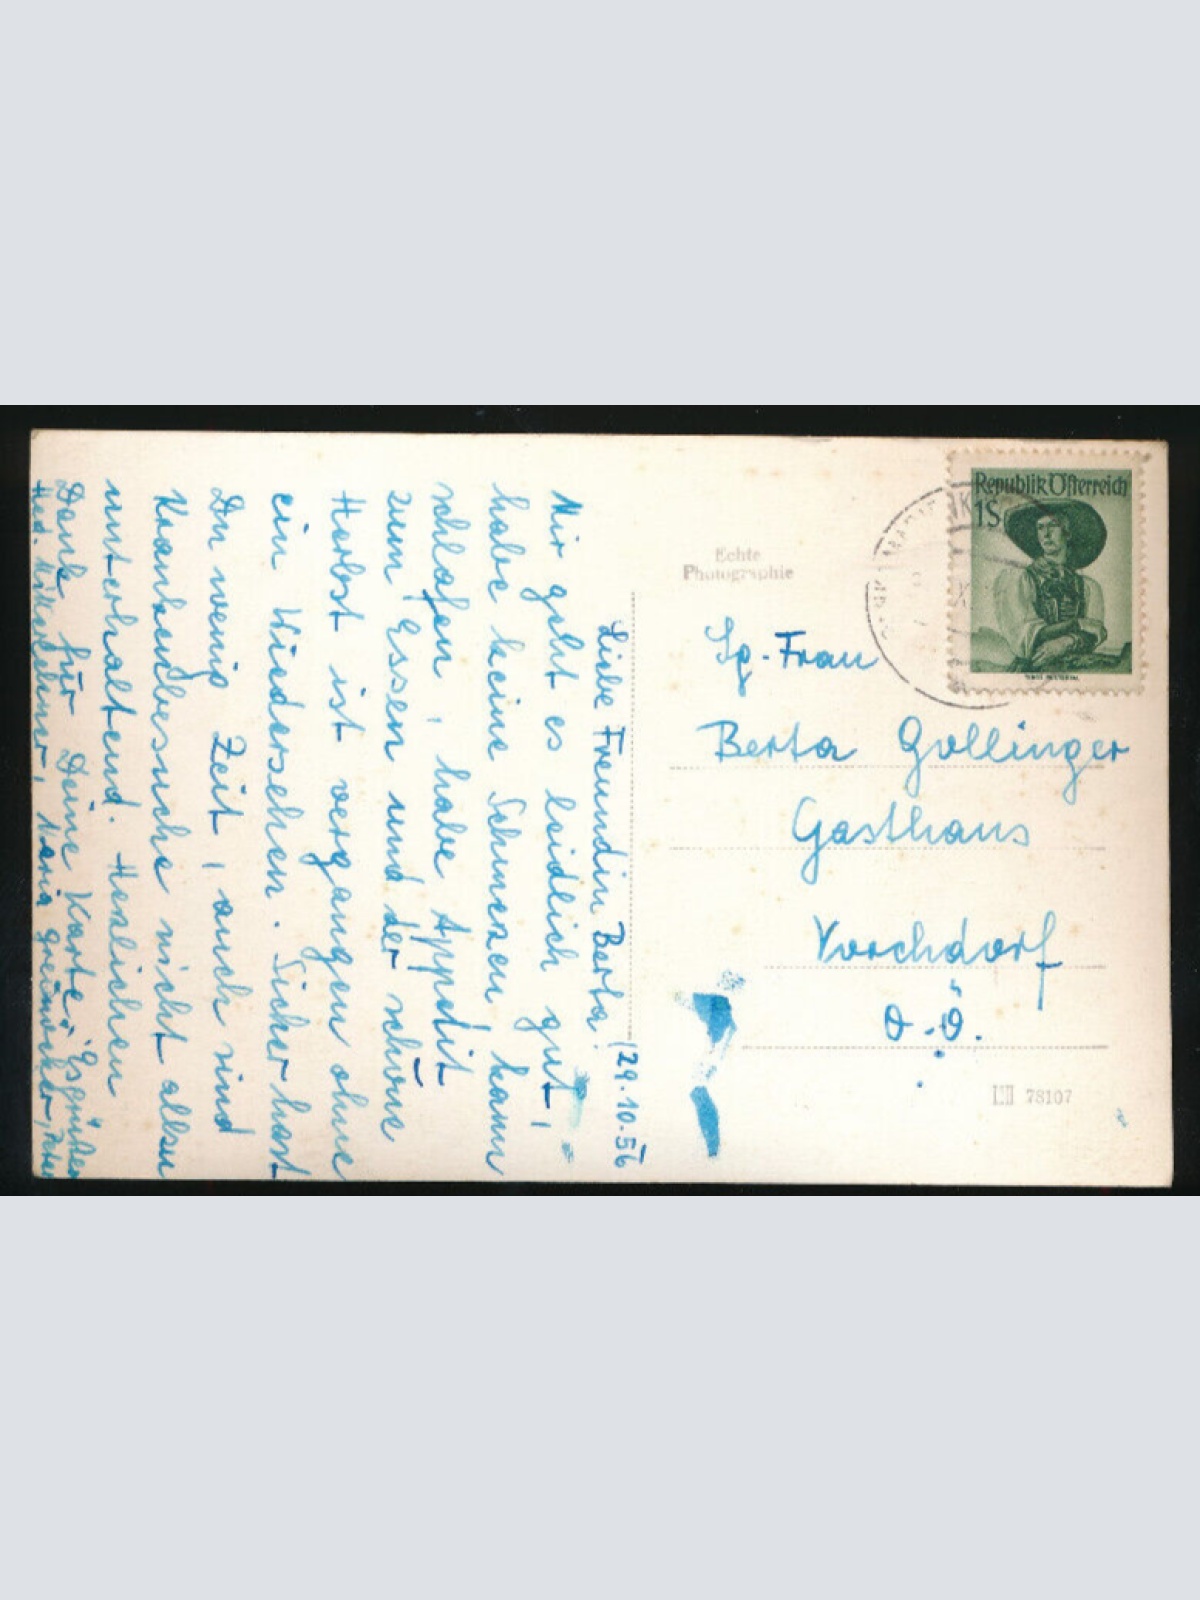 Liebe Freundin Berta! 29.10.56
Mir geht es leidlich gut,
habe keine Schmerzen kann
schlafen, habe Appetit
zum Essen und der schöne
Herbst ist vergangen ohne
ein Wiedersehen. Sicher hast
Du wenig Zeit, auch sind
Krankenbesuche nicht allzu
unterhaltend. Herzlichen
Dank für Deine Karte. Es grüßen
Hed. Maria Peter
Echte
Photographie
Republik Österreich
1S
Frau
Berta Gollinger
Gasthaus
Vorchdorf
O.Ö.
78107